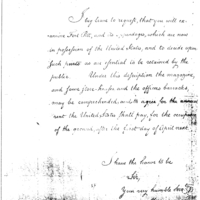 I beg leave to request, that you will ex-
amine Fort Pitt, and its which are now
in possession of the United States, and to decide upon
such parts as are essential to be retained by the
public. Under this description the magazine,
and some store-houses and the officers barracks,
may be comprehended with agree for the annual
rent the United States shall pay, for the occupan
of the ground, after the first day of April next.
I have the honor to be
Sir,
Your very humble Serv